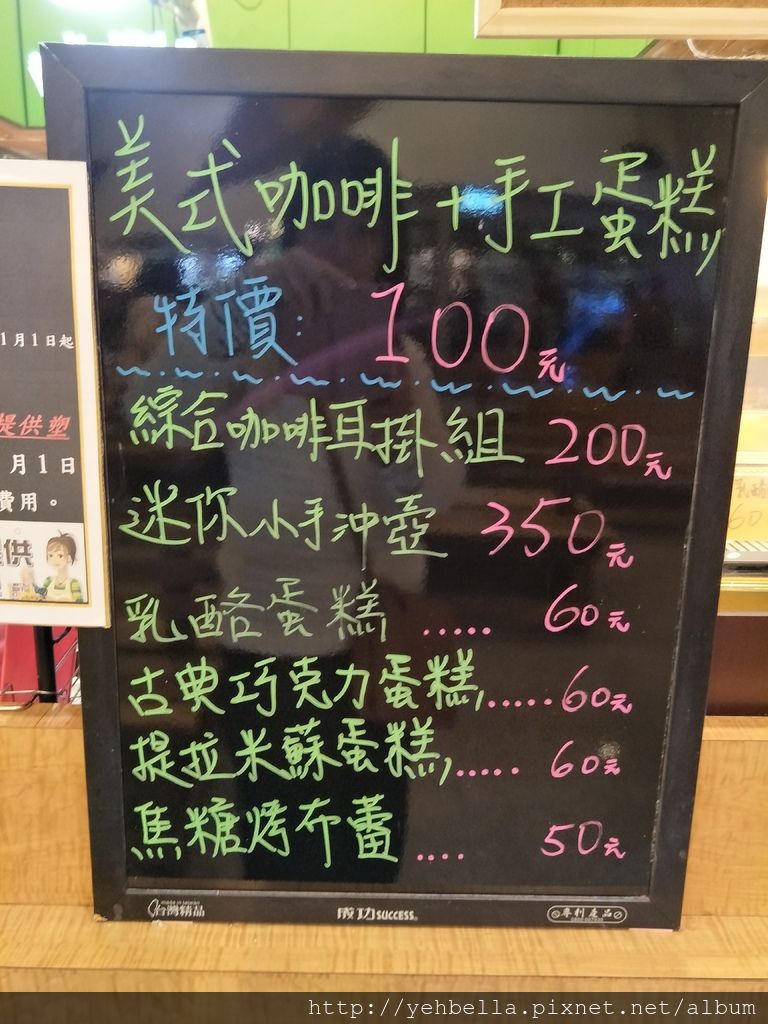 美式咖啡+手工蛋糕
特價: 100元
綜合咖啡耳掛組 200元
迷你小手沖壺 350元
乳酪蛋糕 ..... 60元
古典巧克力蛋糕 ..... 60元
提拉米蘇蛋糕 ..... 60元
焦糖烤布蕾 .... 50元
台灣精品
成功SUCCESS
專利產品
1月1日起
提供塑
月1日
費用。
提供
乳酪
60
http://yehbella.pixnet.net/album